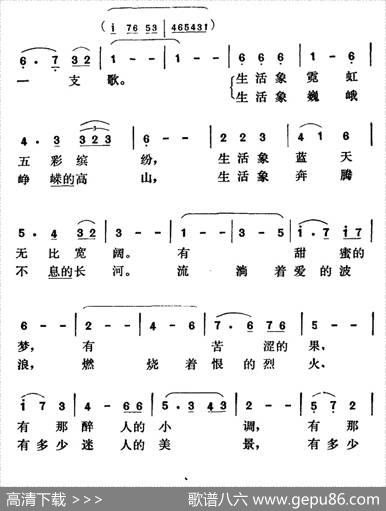 (i 76 53 | 465431)
6·7 32 | 1 - - | 1 - - | 6 6 6 | 1 - 6
一支歌。 生活象霓虹
生活象巍峨
4·3 323 | 6 - - | 2 2 3 | 4 1 6
五彩缤纷, 生活象蓝天
峥嵘的高山, 生活象奔腾
5·4 32 | 3 - - | 1 - - | 3 - 5 | i·7 i7
无比宽阔。有甜蜜的
不息的长河。流淌着爱的波
6 - - | 2 - - | 4 - 6 | 7·6 76 | 5 - -
梦, 有苦涩的果,
浪, 燃烧着恨的烈火、
i 7 3 | 4 - 66 | 5·3 43 | 2 - - | 5 7 2
有那醉人的小调, 有那
有多少迷人的美景, 有多少
高清下载 >>>
歌谱八六 www.gepu86.com